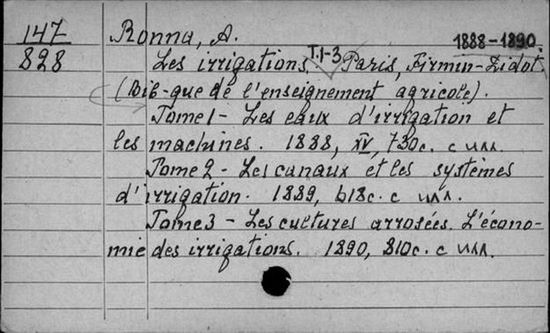 147 Ronna, A.
828 Les irrigations. T.1-3 Paris, Firmin-Didot, 1888-1890.
(Bib-que de l'enseignement agricole).
Tome 1 - Les eaux d'irrigation et
les machines. 1888, XV, 730c. с илл.
Tome 2 - Les canaux et les systèmes
d'irrigation. 1889, 618c. с илл.
Tome 3 - Les cultures arrosées. L'écono-
mie des irrigations. 1890, 810c. с илл.